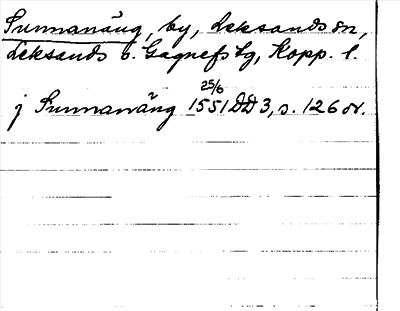 Sunnanäng, by, Leksands sn,
Leksands o. Gagnefs tg, Kopp. l.
25/6
j Sunnanäng 1551 DD 3, s. 126 r.